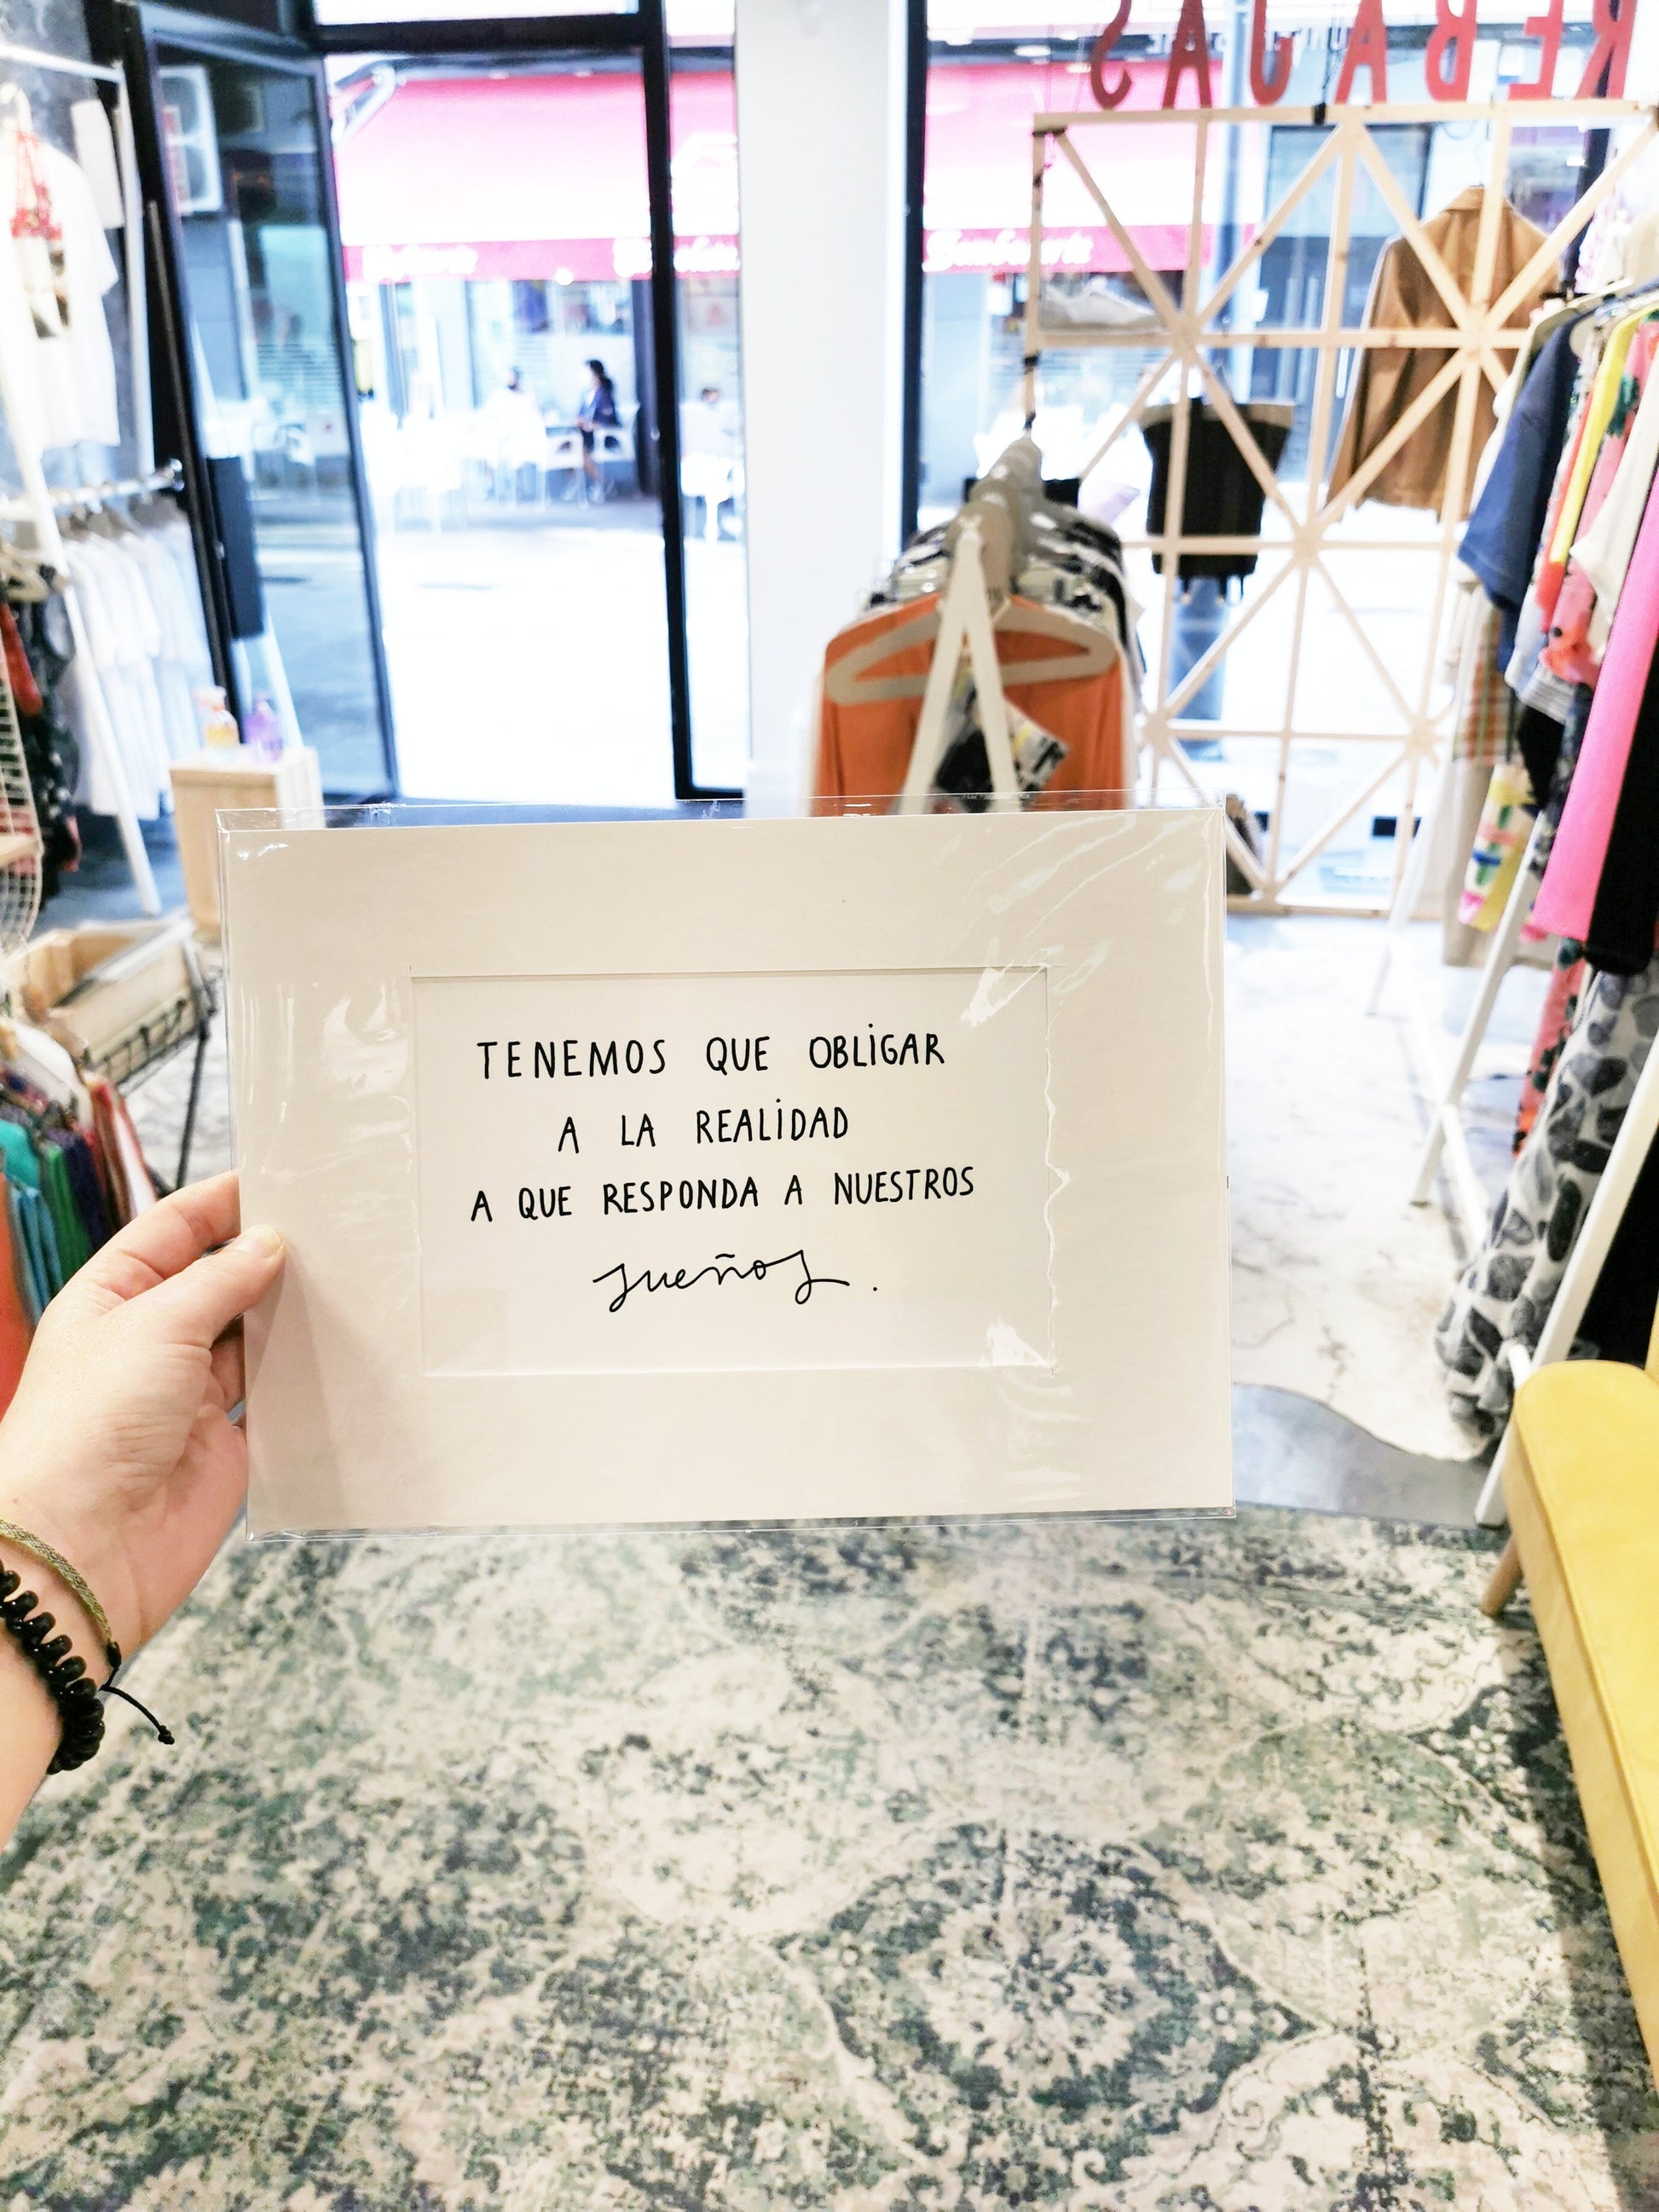 REBAJAS
TENEMOS QUE OBLIGAR
A LA REALIDAD
A QUE RESPONDA A NUESTROS
sueños.